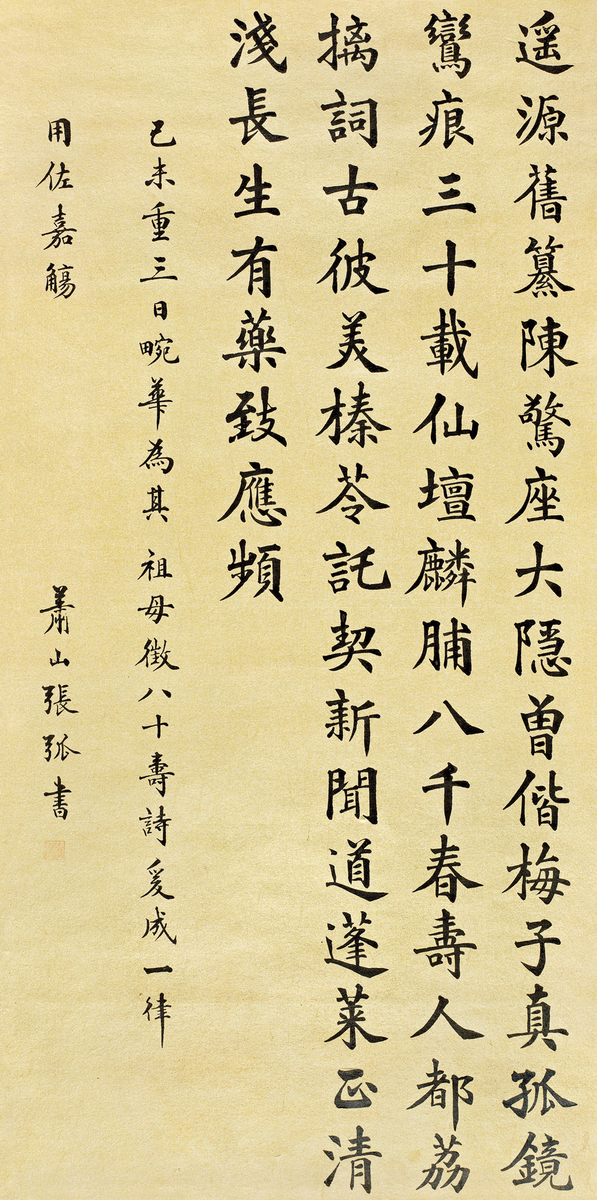 遥源舊纂陳驚座大隠曾偕梅子真孤鏡
鸞痕三十載仙壇麟脯八千春壽人都荔
摛詞古彼美榛苓託契新聞道蓬萊正清
淺長生有藥致應頻
己未重三日畹華為其 祖母徵八十壽詩爰成一律
用佐嘉觴 蕭山張弧書